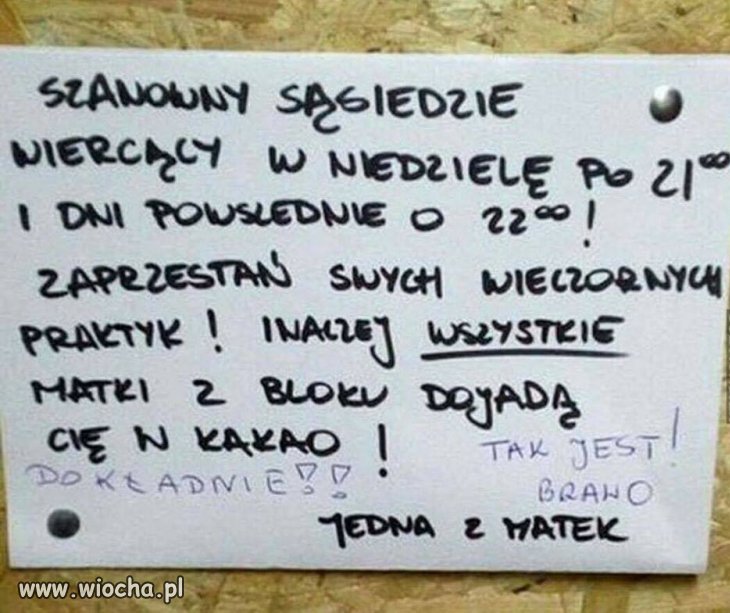 SZANOWNY SĄSIEDZIE
WIERCĄCY W NIEDZIELĘ PO 21⁰⁰
I DNI POWSZEDNIE O 22⁰⁰!
ZAPRZESTAŃ SWYCH WIECZORNYCH
PRAKTYK! INACZEJ WSZYSTKIE
MATKI Z BLOKU DOJADĄ
CIĘ W KĄKAO!
TAK JEST!
DOKŁADNIE!!
BRAWO
JEDNA Z MATEK
www.wiocha.pl